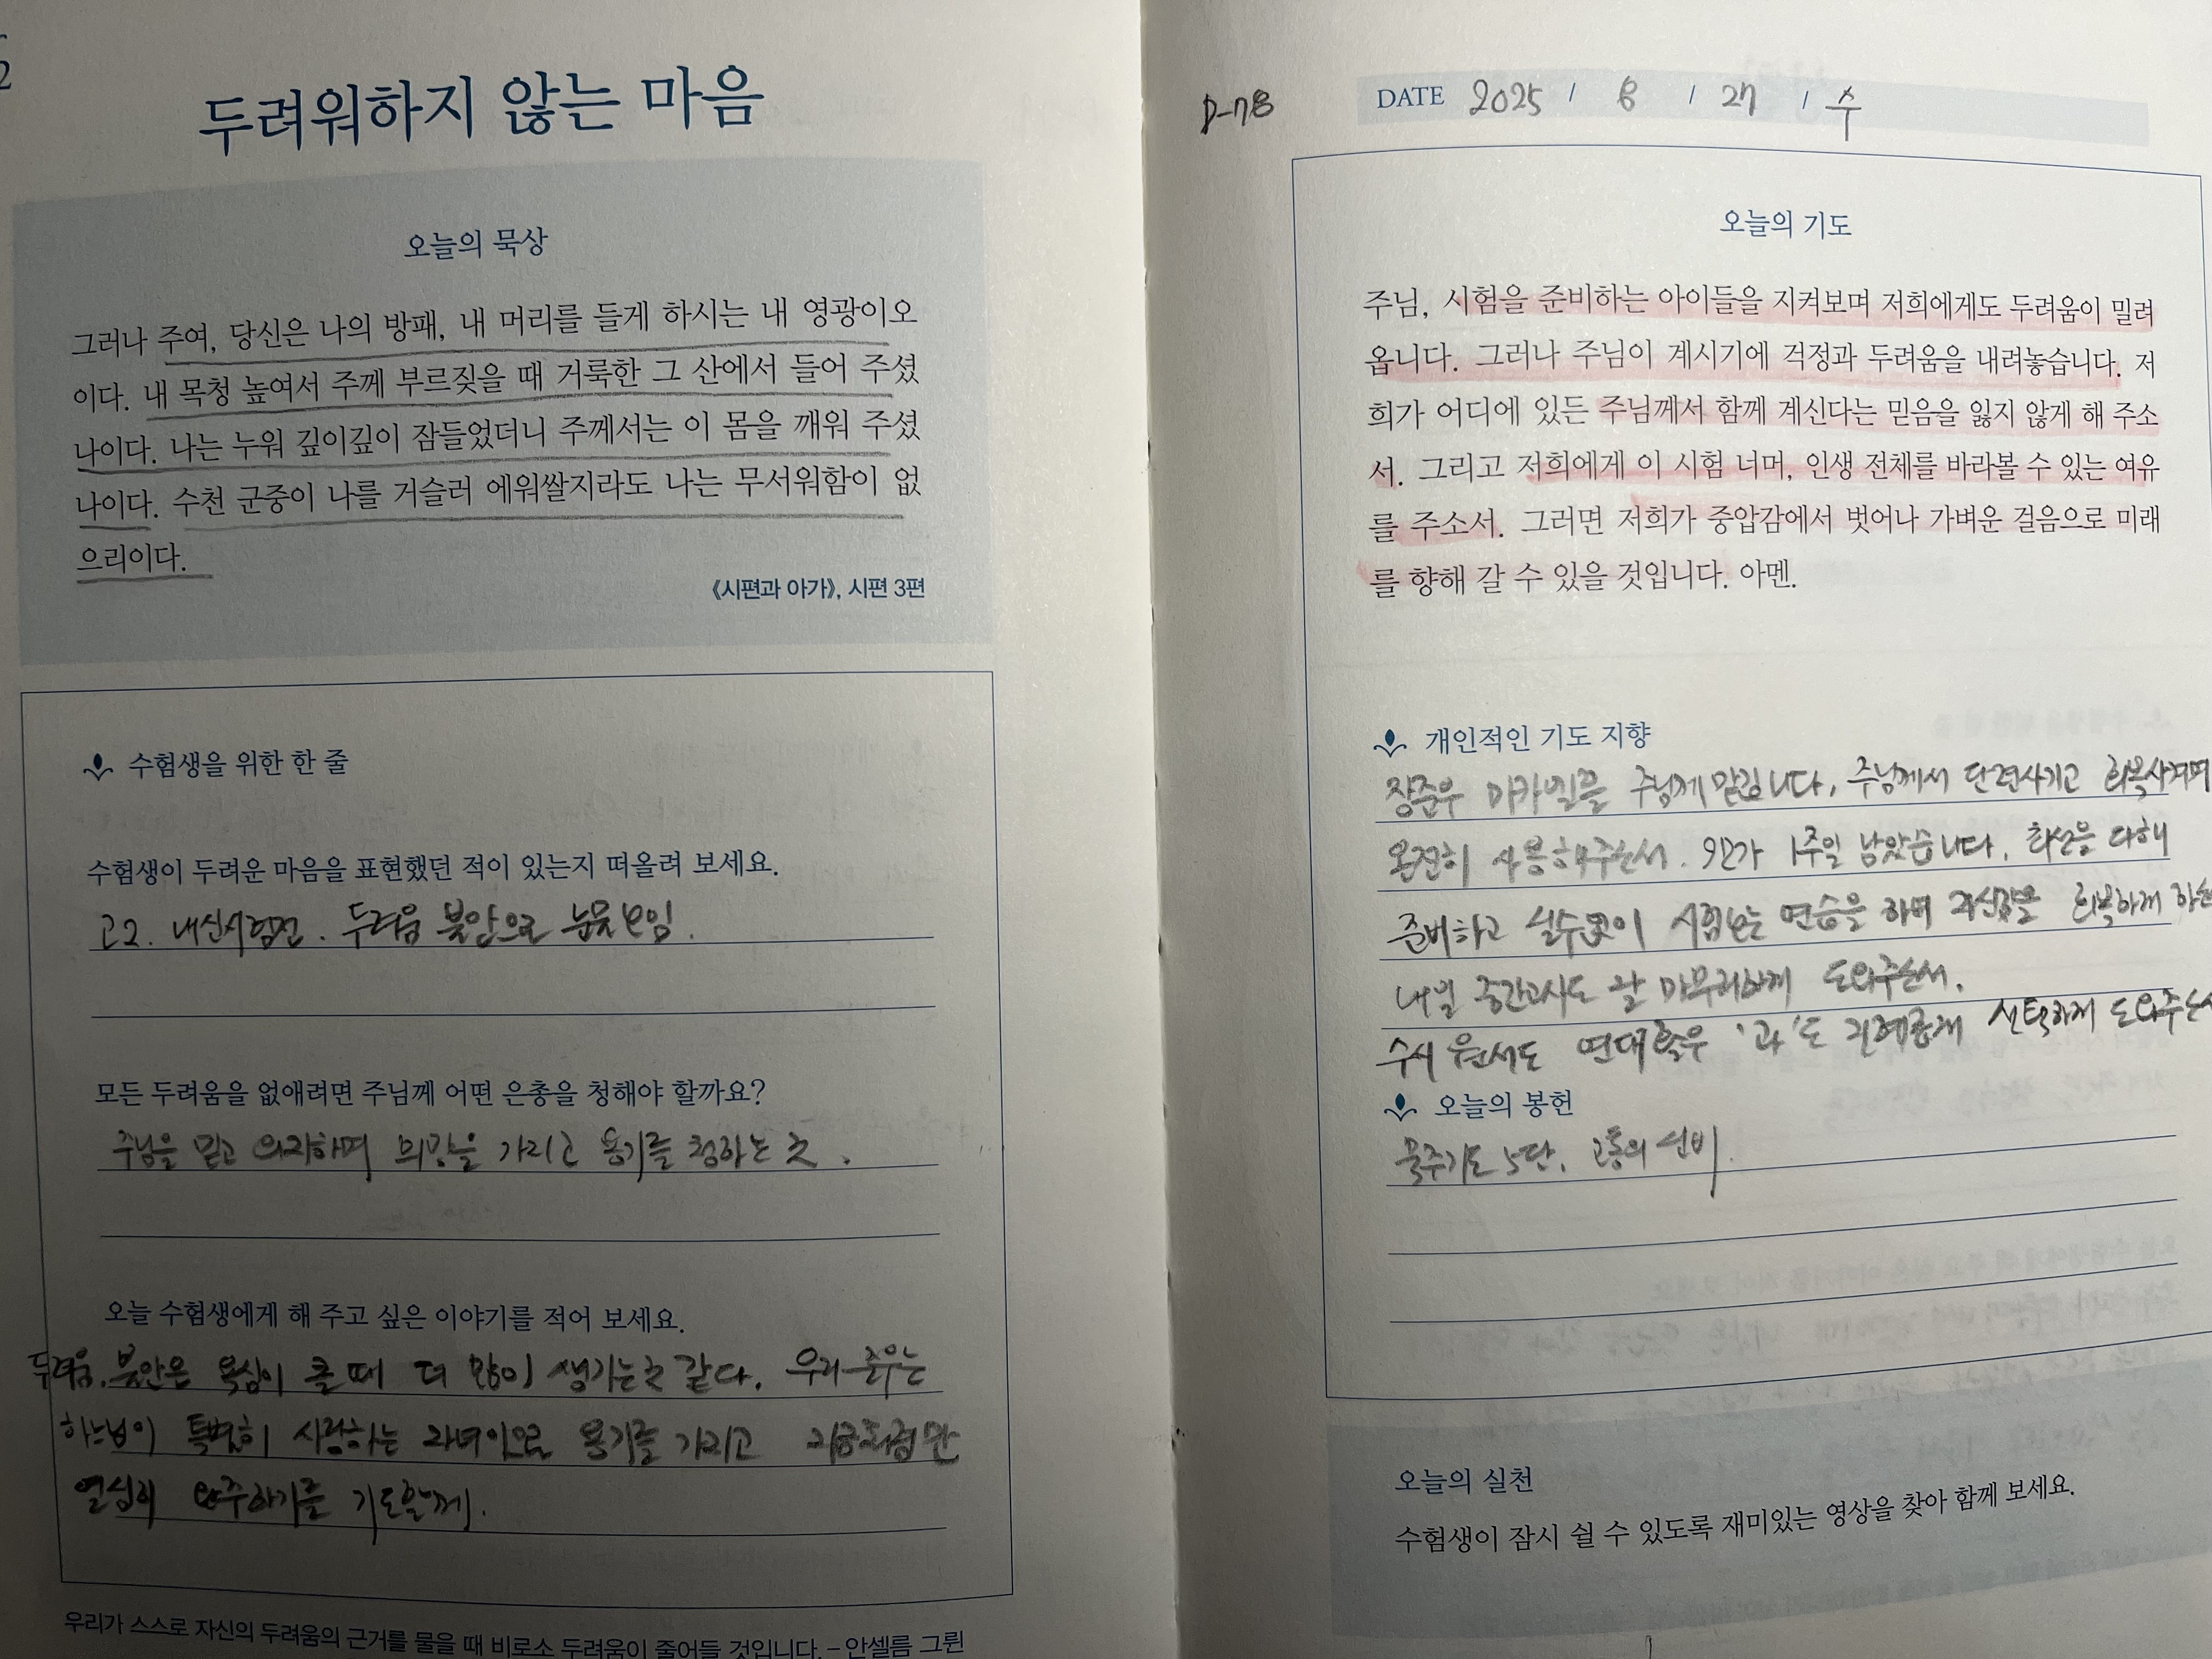 2
두려워하지 않는 마음
오늘의 묵상
그러나 주여, 당신은 나의 방패, 내 머리를 들게 하시는 내 영광이오
이다. 내 목청 높여서 주께 부르짖을 때 거룩한 그 산에서 들어 주셨
나이다. 나는 누워 깊이깊이 잠들었더니 주께서는 이 몸을 깨워 주셨
나이다. 수천 군중이 나를 거슬러 에워쌀지라도 나는 무서워함이 없
으리이다.
《시편과 아가》, 시편 3편
수험생을 위한 한 줄
수험생이 두려운 마음을 표현했던 적이 있는지 떠올려 보세요.
고2. 내신시험전. 두려움 불안으로 눈물보임.
모든 두려움을 없애려면 주님께 어떤 은총을 청해야 할까요?
주님을 믿고 의지하며 희망을 가지고 용기를 청하는 것.
오늘 수험생에게 해 주고 싶은 이야기를 적어 보세요.
두려움. 불안은 욕심이 클 때 더 많이 생기는것 같다. 우리 준우는
하느님이 특별히 사랑하는 자녀이므로 용기를 가지고 지금처럼만
열심히 완주하기를 기도할께.
우리가 스스로 자신의 두려움의 근거를 물을 때 비로소 두려움이 줄어들 것입니다. – 안셀름 그륀
D-78
DATE 2025 / 8 / 27 / 수
오늘의 기도
주님, 시험을 준비하는 아이들을 지켜보며 저희에게도 두려움이 밀려
옵니다. 그러나 주님이 계시기에 걱정과 두려움을 내려놓습니다. 저
희가 어디에 있든 주님께서 함께 계신다는 믿음을 잃지 않게 해 주소
서. 그리고 저희에게 이 시험 너머, 인생 전체를 바라볼 수 있는 여유
를 주소서. 그러면 저희가 중압감에서 벗어나 가벼운 걸음으로 미래
를 향해 갈 수 있을 것입니다. 아멘.
개인적인 기도 지향
장준우 미카엘을 주님께 맡깁니다. 주님께서 단련시키고 회복시키며
온전히 사용해주소서. 9모가 1주일 남았습니다. 최선을 다해
준비하고 실수없이 시험보는 연습을 하며 자신감을 회복하게 하소
내일 중간고사도 잘 마무리하게 도와주소서.
수시 원서도 연대 '과'도 지혜롭게 선택하게 도와주소서
오늘의 봉헌
묵주기도 5단. 고통의 신비.
오늘의 실천
수험생이 잠시 쉴 수 있도록 재미있는 영상을 찾아 함께 보세요.